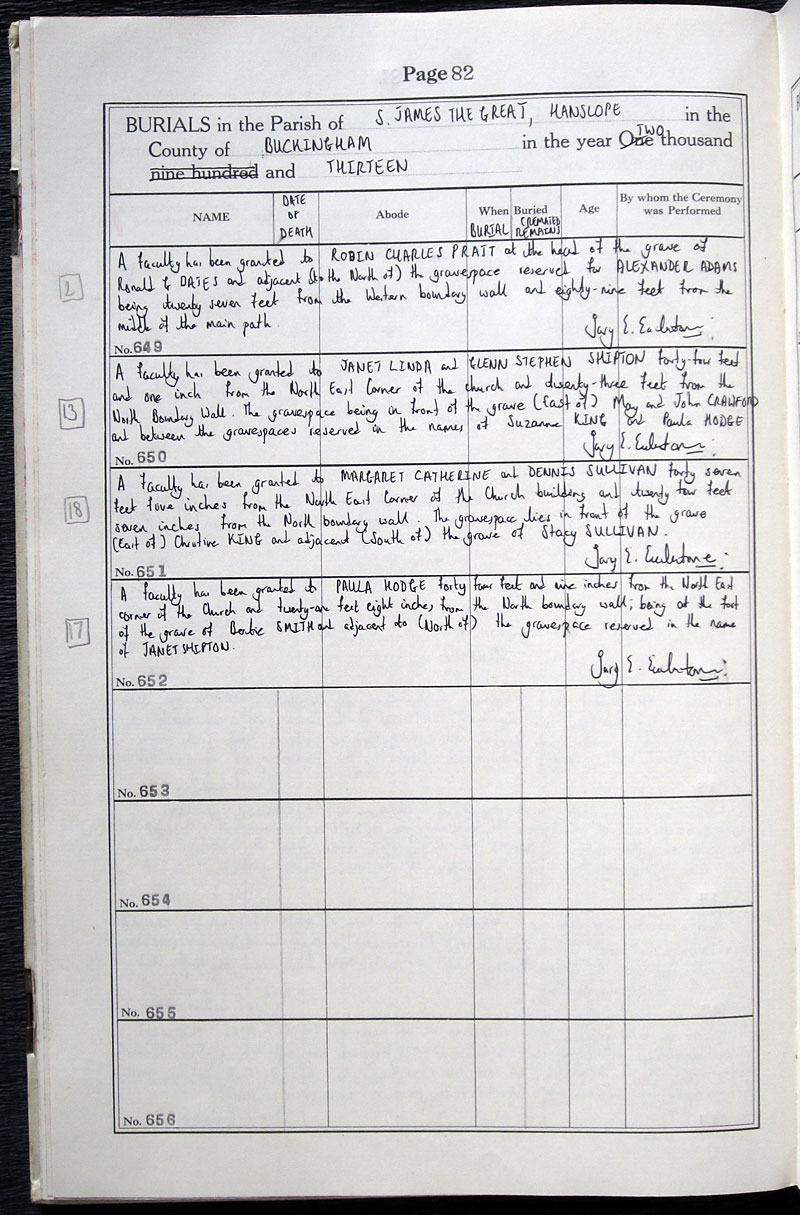 Page 82
BURIALS in the Parish of S. JAMES THE GREAT, HANSLOPE in the
County of BUCKINGHAM in the year One TWO thousand
nine hundred and THIRTEEN
NAME DATE OF DEATH Abode When BURIAL Buried CREMATED REMAINS Age By whom the Ceremony was Performed
A faculty has been granted to ROBIN CHARLES PRATT at the head of the grave of
Ronald G OATES and adjacent (to the North of) the gravespace reserved for ALEXANDER ADAMS
2
being twenty seven feet from the Western boundary wall and eighty-nine feet from the
middle of the main path.
No. 649
A faculty has been granted to JANET LINDA and GLENN STEPHEN SHIPTON forty-four feet
and one inch from the North East Corner of the church and twenty-three feet from the
13
North Boundary Wall. The gravespace being in front of the grave (East of) May and John CRAWFORD
and between the gravespaces reserved in the names of Suzanne KING and Paula HODGE
No. 650
A faculty has been granted to MARGARET CATHERINE and DENNIS SULLIVAN forty seven
feet five inches from the North East Corner of the Church building and twenty four feet
18
seven inches from the North boundary wall. The gravespace lies in front of the grave
(East of) Christine KING and adjacent (South of) the grave of Stacy SULLIVAN.
No. 651
A faculty has been granted to PAULA HODGE forty four feet and nine inches from the North East
corner of the Church and twenty-one feet eight inches from the North boundary wall; being at the foot
17
of the grave of SMITH and adjacent to (North of) the gravespace reserved in the name
of JANET SHIPTON.
No. 652
No. 653
No. 654
No. 655
No. 656